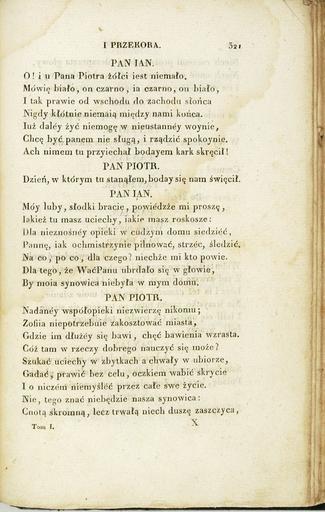 I PRZEKORA. 321
PAN IAN.
O! i u Pana Piotra żółci iest niemało.
Mówię biało, on czarno, ia czarno, on biało,
I tak prawie od wschodu do zachodu słońca
Nigdy kłótnie niemaią między nami końca.
Iuż daléy żyć niemogę w nieustannéy woynie,
Chcę być panem nie sługą, i rządzić spokoynie.
Ach nimem tu przyiechał bodayem kark skręcił!
PAN PIOTR.
Dzień, w którym tu stanąłem, boday się nam święcił.
PAN IAN.
Móy luby, słodki bracie, powiédźże mi proszę,
Iakież tu masz uciechy, iakie masz roskosze:
Dla nieznośnéy opieki w cudzym domu siedziéć,
Pannę, iak ochmistrzynie pilnować, strzéc, śledzić.
Na co, po co, dla czego? niechże mi kto powie.
Dla tego, że WaćPanu ubrdało się w głowie,
By moia synowica niebyła w mym domu.
PAN PIOTR.
Nadanéy współopieki niezwierzę nikomu;
Zofiia niepotrzebuie zakosztować miasta,
Gdzie im dłużéy się bawi, chęć bawienia wzrasta.
Cóż tam w rzeczy dobrego nauczyć się może?
Szukać uciechy w zbytkach a chwały w ubiorze,
Gadać, prawić bez celu, oczkiem wabić skrycie
I o niczém niemyśléć przez całe swe życie.
Nie, tego znać niebędzie nasza synowica:
Cnotą skromną, lecz trwałą niech duszę zaszczyca,
Tom I. X